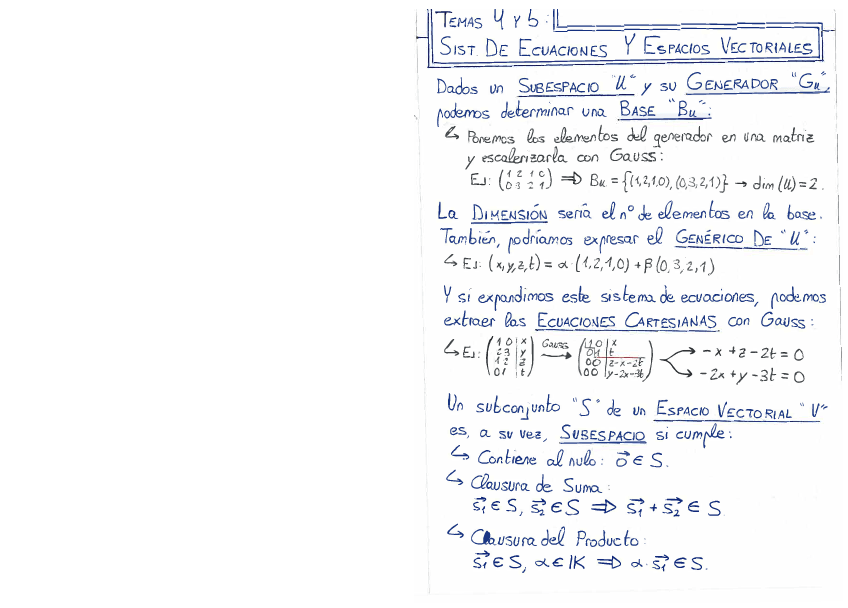 TEMAS 4 Y 5:
SIST. DE ECUACIONES Y ESPACIOS VECTORIALES
Dados un SUBESPACIO "U" y su GENERADOR "Gu",
podemos determinar una BASE "Bu":
↳ Ponemos los elementos del generador en una matriz
y escalerizarla con Gauss:
EJ: (1 2 1 0 / 0 3 2 1) ⇒ Bu = {(1,2,1,0), (0,3,2,1)} → dim (U) = 2.
La DIMENSIÓN sería el nº de elementos en la base.
También, podríamos expresar el GENÉRICO DE "U":
↳ EJ: (x,y,z,t) = α·(1,2,1,0) + β(0,3,2,1)
Y si expandimos este sistema de ecuaciones, podemos
extraer las ECUACIONES CARTESIANAS con Gauss:
↳ EJ: (1 0 | x / 2 3 | y / 1 2 | z / 0 1 | t) Gauss → (1 0 | x / 0 1 | t / 0 0 | z-x-2t / 0 0 | y-2x-3t) → -x + z - 2t = 0
→ -2x + y - 3t = 0
Un subconjunto "S" de un ESPACIO VECTORIAL "V"
es, a su vez, SUBESPACIO si cumple:
↳ Contiene al nulo: 0⃗ ∈ S.
↳ Clausura de Suma:
s⃗₁ ∈ S, s⃗₂ ∈ S ⇒ s⃗₁ + s⃗₂ ∈ S
↳ Clausura del Producto:
s⃗₁ ∈ S, α ∈ IK ⇒ α·s⃗₁ ∈ S.